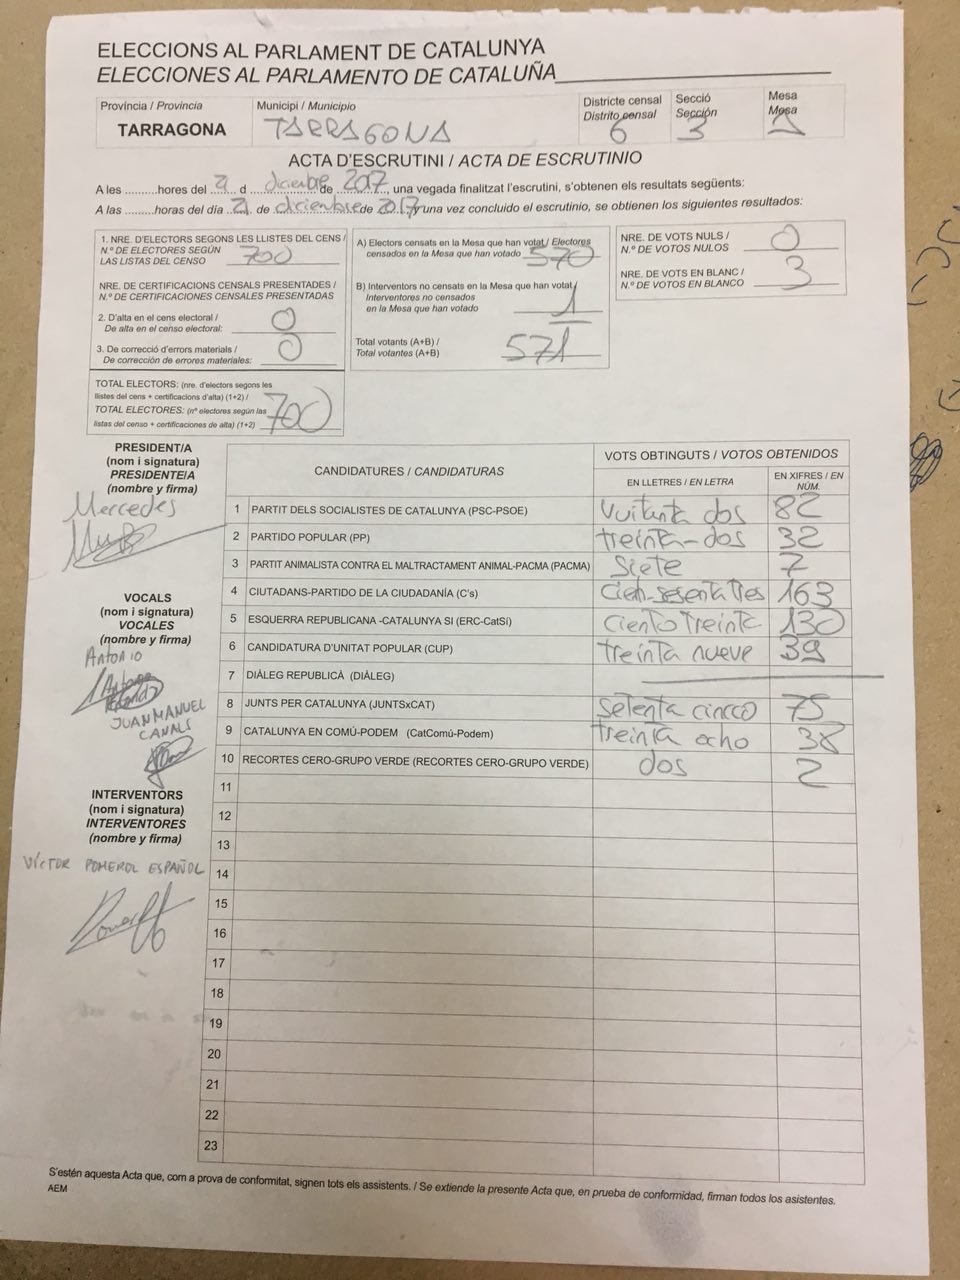 ELECCIONS AL PARLAMENT DE CATALUNYA
ELECCIONES AL PARLAMENTO DE CATALUÑA
Província / Provincia
TARRAGONA
Municipi / Municipio
TARRAGONA
Districte censal
Distrito censal
6
Secció
Sección
3
Mesa
Mesa
ACTA D'ESCRUTINI / ACTA DE ESCRUTINIO
A les ..........hores del 21 d diciembre de 2017, una vegada finalitzat l'escrutini, s'obtenen els resultats següents:
A las ..........horas del día 21 de diciembre de 2017 y una vez concluido el escrutinio, se obtienen los siguientes resultados:
1. NRE. D'ELECTORS SEGONS LES LLISTES DEL CENS /
N.º DE ELECTORES SEGÚN
LAS LISTAS DEL CENSO 700
NRE. DE CERTIFICACIONS CENSALS PRESENTADES /
N.º DE CERTIFICACIONES CENSALES PRESENTADAS
2. D'alta en el cens electoral /
De alta en el censo electoral: 0
3. De correcció d'errors materials /
De corrección de errores materiales: 0
TOTAL ELECTORS: (nre. d'electors segons les
llistes del cens + certificacions d'alta) (1+2) /
TOTAL ELECTORES: (nº electores según las
listas del censo + certificaciones de alta) (1+2) 700
A) Electors censats en la Mesa que han votat / Electores
censados en la Mesa que han votado 570
B) Interventors no censats en la Mesa que han votat /
Interventores no censados
en la Mesa que han votado 1
Total votants (A+B) /
Total votantes (A+B) 571
NRE. DE VOTS NULS /
N.º DE VOTOS NULOS 0
NRE. DE VOTS EN BLANC /
N.º DE VOTOS EN BLANCO 3
PRESIDENT/A
(nom i signatura)
PRESIDENTE/A
(nombre y firma)
Mercedes
VOCALS
(nom i signatura)
VOCALES
(nombre y firma)
ANTONIO
JUAN MANUEL
CANALS
INTERVENTORS
(nom i signatura)
INTERVENTORES
(nombre y firma)
VÍCTOR POMEROL ESPAÑOL
CANDIDATURES / CANDIDATURAS
VOTS OBTINGUTS / VOTOS OBTENIDOS
EN LLETRES / EN LETRA
EN XIFRES / EN NÚM.
1 PARTIT DELS SOCIALISTES DE CATALUNYA (PSC-PSOE) vuitanta dos 82
2 PARTIDO POPULAR (PP) treinta-dos 32
3 PARTIT ANIMALISTA CONTRA EL MALTRACTAMENT ANIMAL-PACMA (PACMA) Siete 7
4 CIUTADANS-PARTIDO DE LA CIUDADANÍA (C's) Cien-sesenta tres 163
5 ESQUERRA REPUBLICANA -CATALUNYA SI (ERC-CatSí) Ciento treinta 130
6 CANDIDATURA D'UNITAT POPULAR (CUP) treinta nueve 39
7 DIÀLEG REPUBLICÀ (DIÀLEG)
8 JUNTS PER CATALUNYA (JUNTSxCAT) Setenta cincco 75
9 CATALUNYA EN COMÚ-PODEM (CatComú-Podem) treinta ocho 38
10 RECORTES CERO-GRUPO VERDE (RECORTES CERO-GRUPO VERDE) dos 2
11
12
13
14
15
16
17
18
19
20
21
22
23
S'estén aquesta Acta que, com a prova de conformitat, signen tots els assistents. / Se extiende la presente Acta que, en prueba de conformidad, firman todos los asistentes.
AEM